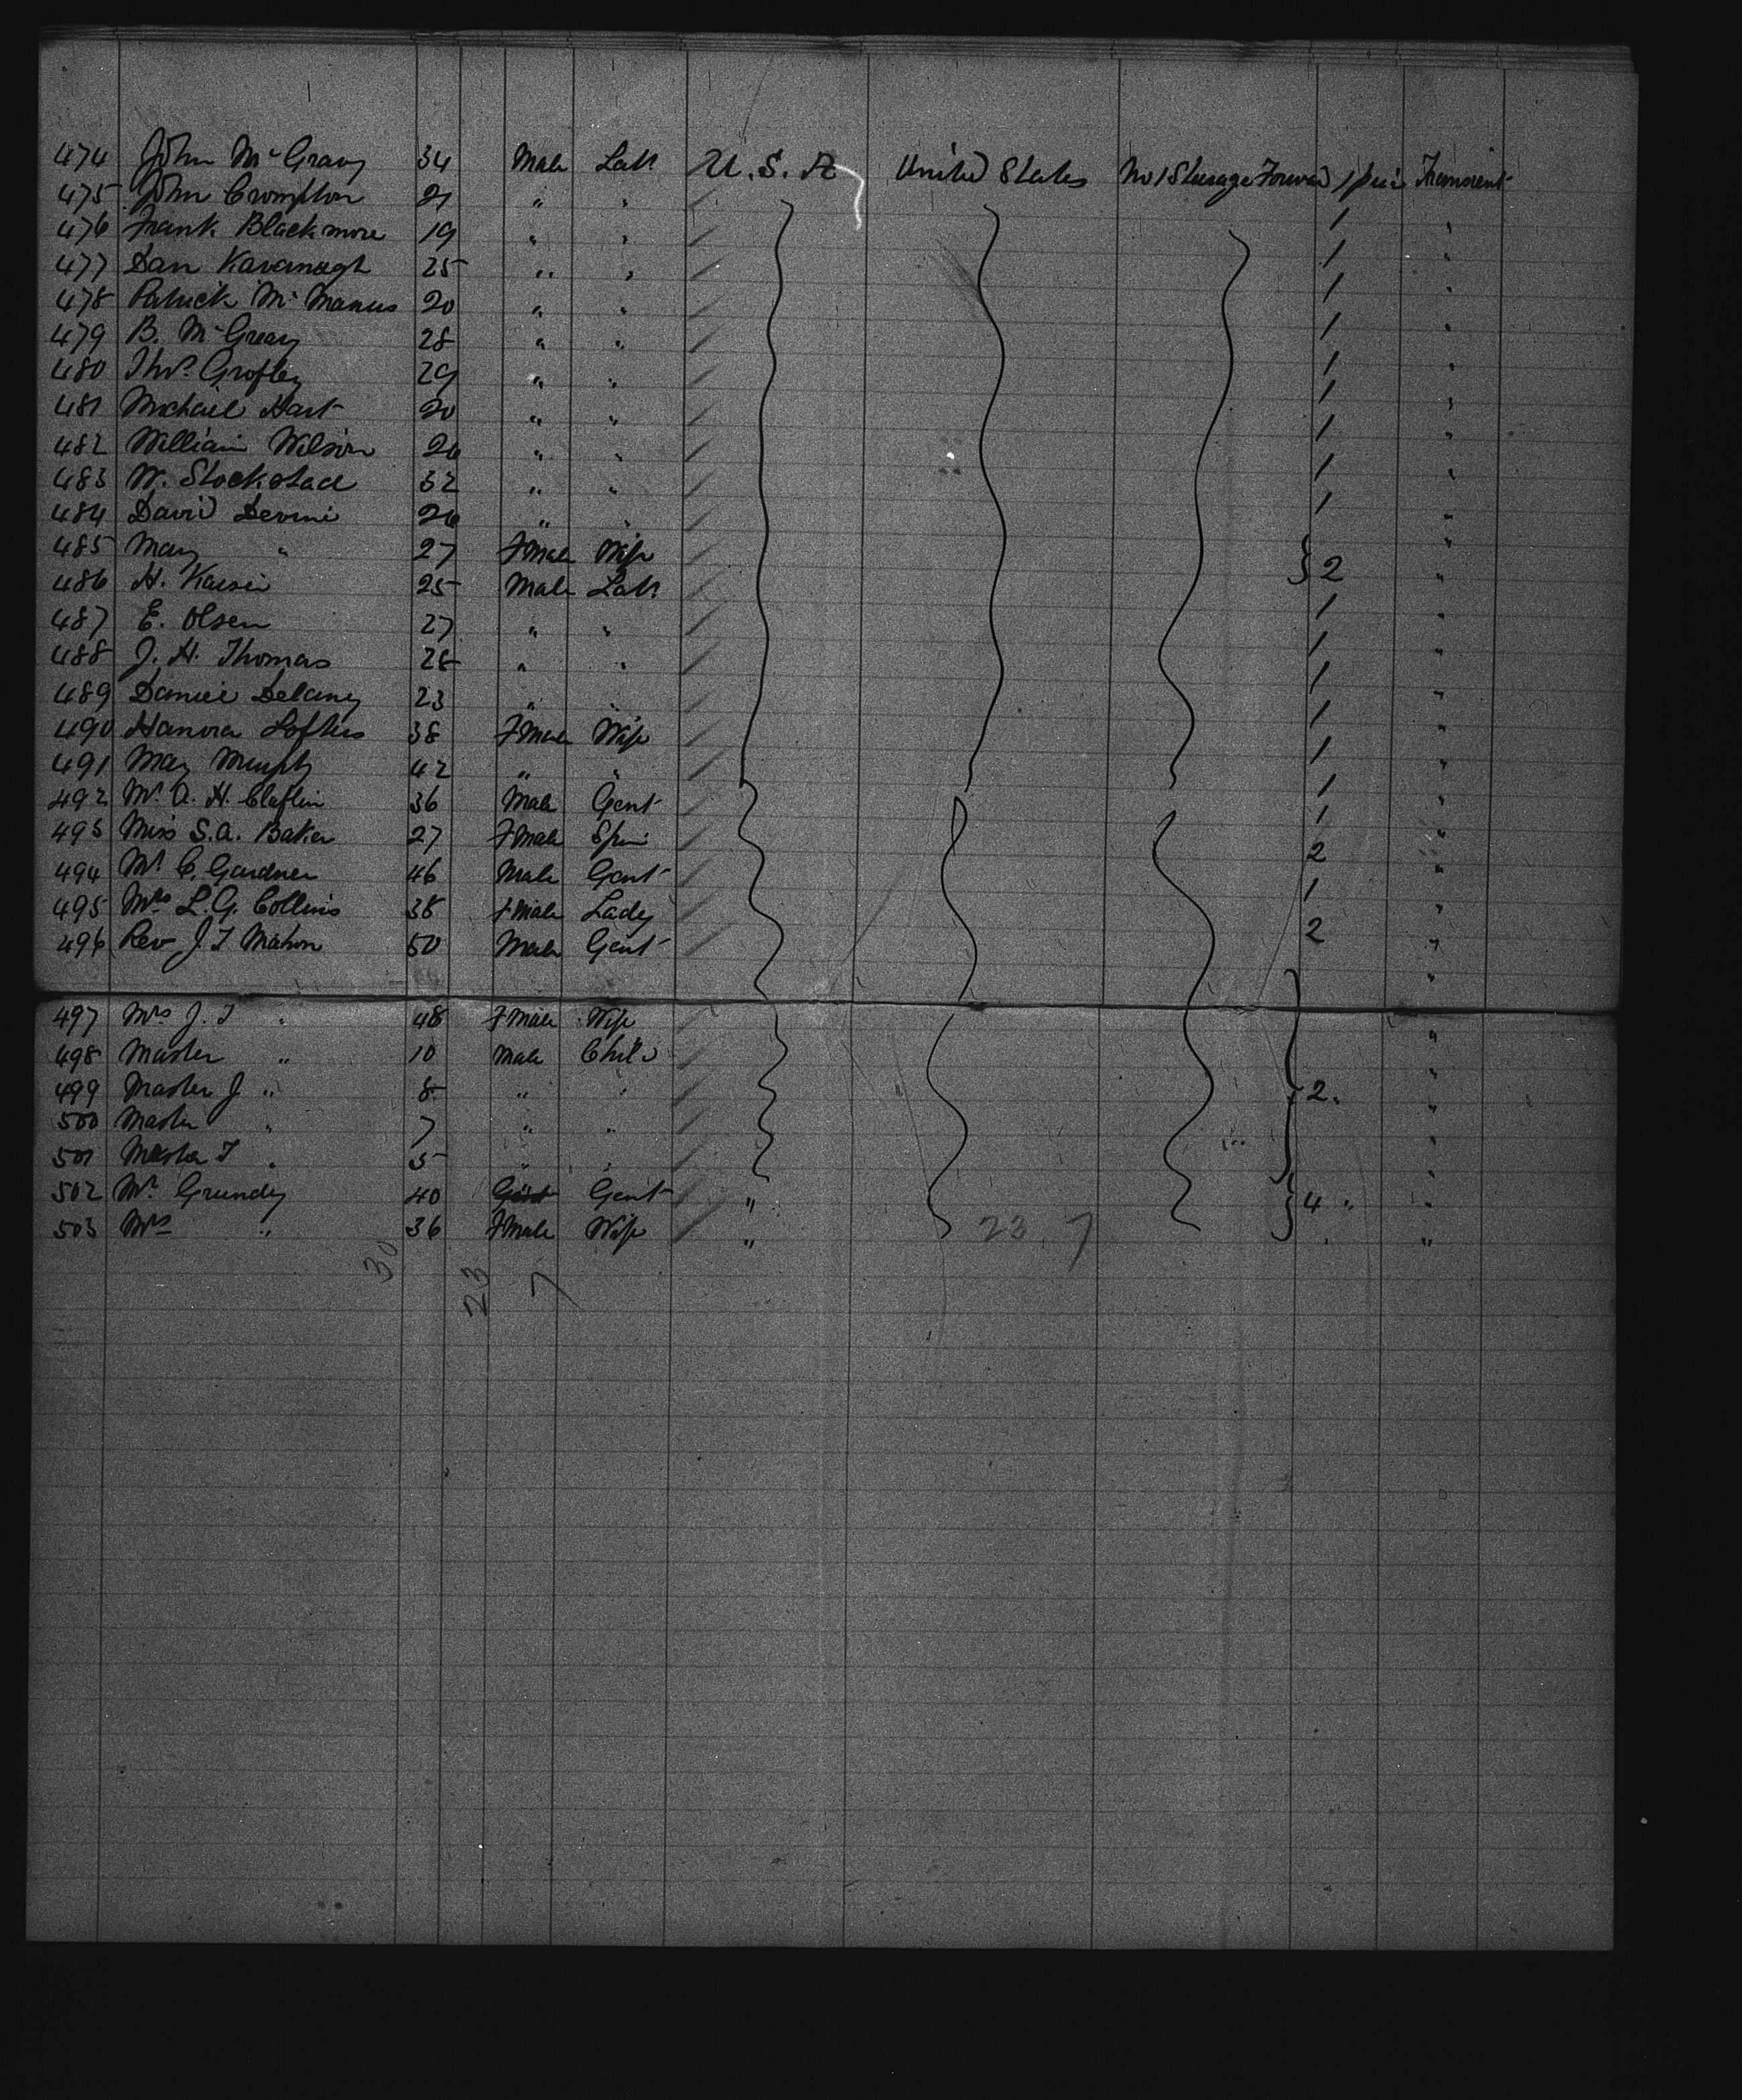 474 John McGravy 34 Male Labr U.S.A United States No 1 Steerage Forward 1 piece Transient
475 John Crompton 21 " " 1 "
476 Frank Blackmore 19 " " 1 "
477 Dan Kavanagh 25 " " 1 "
478 Patrick McManus 20 " " 1 "
479 B. McGreary 28 " " 1 "
480 Thos. 29 " " 1 "
481 Michael Hart 20 " " 1 "
482 William Wilson 20 " " 1 "
483 W. 32 " " 1 "
484 David Devine " " "
485 Mary " 27 Fmale Wife } 2 "
486 H. Kaiser 25 Male Labr 1 "
487 E. Olsen 27 " " 1 "
488 J. H. Thomas 28 " " 1 "
489 Daniel Delany 23 " " 1 "
490 Hanora Loftus 38 Fmale Wife 1 "
491 May Murphy 42 " " 1 "
492 Mr. A. H. Claflin 36 Male Gent 1 "
493 Miss S. A. Baker 27 Fmale Spin 2 "
494 Mr C. Gardner 46 Male Gent 1 "
495 Mrs L. G. Collins 38 Fmale Lady 2 "
496 Rev J T Mahon 50 Male Gent "
497 Mrs J. T " 48 Fmale Wife "
498 Master " 10 Male Child "
499 Master J " 8 " " 2 "
500 Master " 7 " " "
501 Master T " 5 " " "
502 Mr. Grundy 40 Gent Gent " 4 " "
503 Mrs " 36 Fmale Wife " 23 7 "
30 23 7